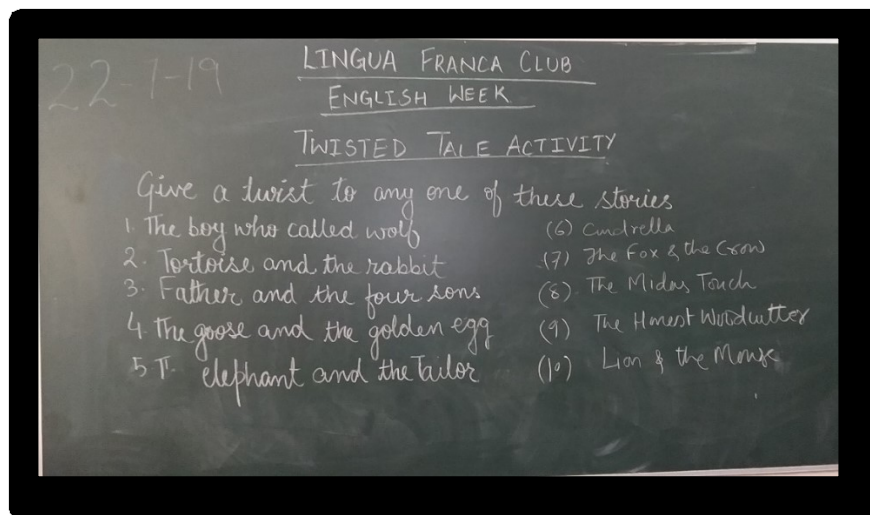 22-7-19
LINGUA FRANCA CLUB
ENGLISH WEEK
TWISTED TALE ACTIVITY
Give a twist to any one of these stories
1. The boy who called wolf
2. Tortoise and the rabbit
3. Father and the four sons
4. The goose and the golden egg
5 T. elephant and the Tailor
(6) Cindrella
(7) The Fox & the Crow
(8). The Midas Touch
(9) The Honest Woodcutter
(10) Lion & the Mouse